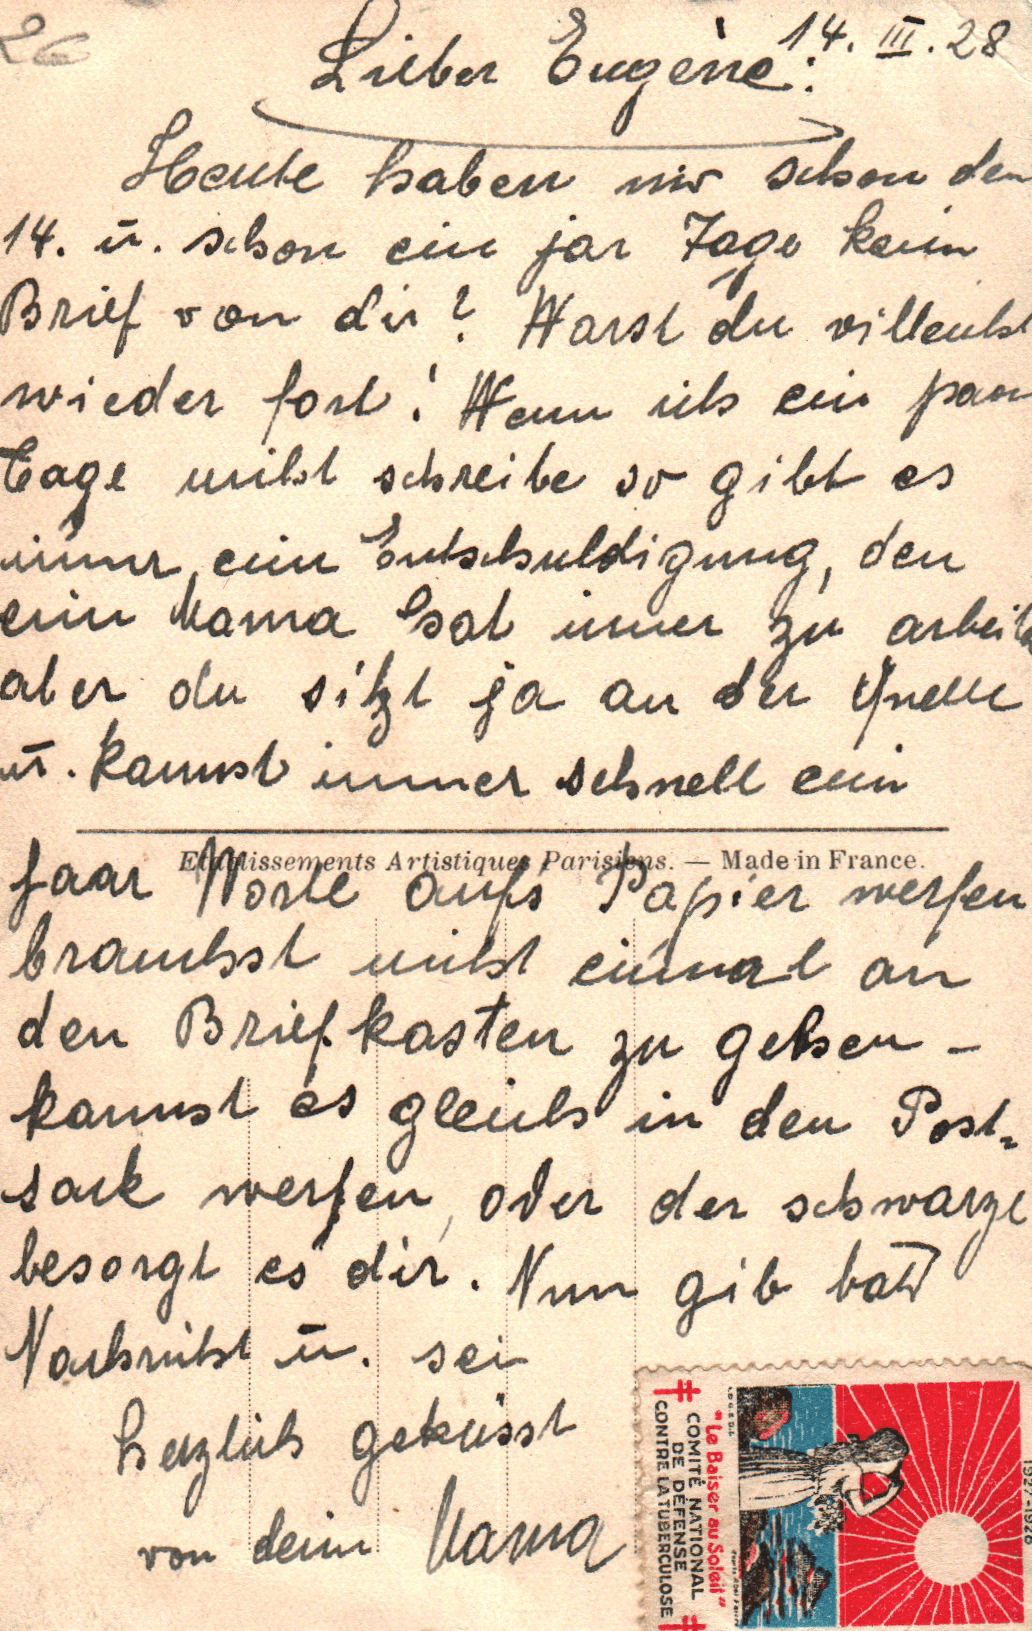 26
14. III. 28
Lieber Eugène:
Heute haben wir schon den
14. u. schon ein par Tage kein
Brief von dir? Warst du villeicht
wieder fort! Wenn ich ein paar
Tage nicht schreibe so gibt es
immer ein Entschuldigung, den
ein Mama hat immer zu arbeiten
aber du sitzt ja an der Quelle
u. kannst immer schnell ein
Etablissements Artistiques Parisiens. — Made in France.
paar Worte aufs Papier werfen
brauchst nicht einmal an
den Briefkasten zu gehen –
kannst es gleich in den Post-
sack werfen, oder der schwarze
besorgt es dir. Nun gib bald
Nachricht u. sei
herzlich geküsst
von dein Mama
"Le Baiser au Soleil"
COMITÉ NATIONAL
DE DÉFENSE
CONTRE LA TUBERCULOSE
1927-1928